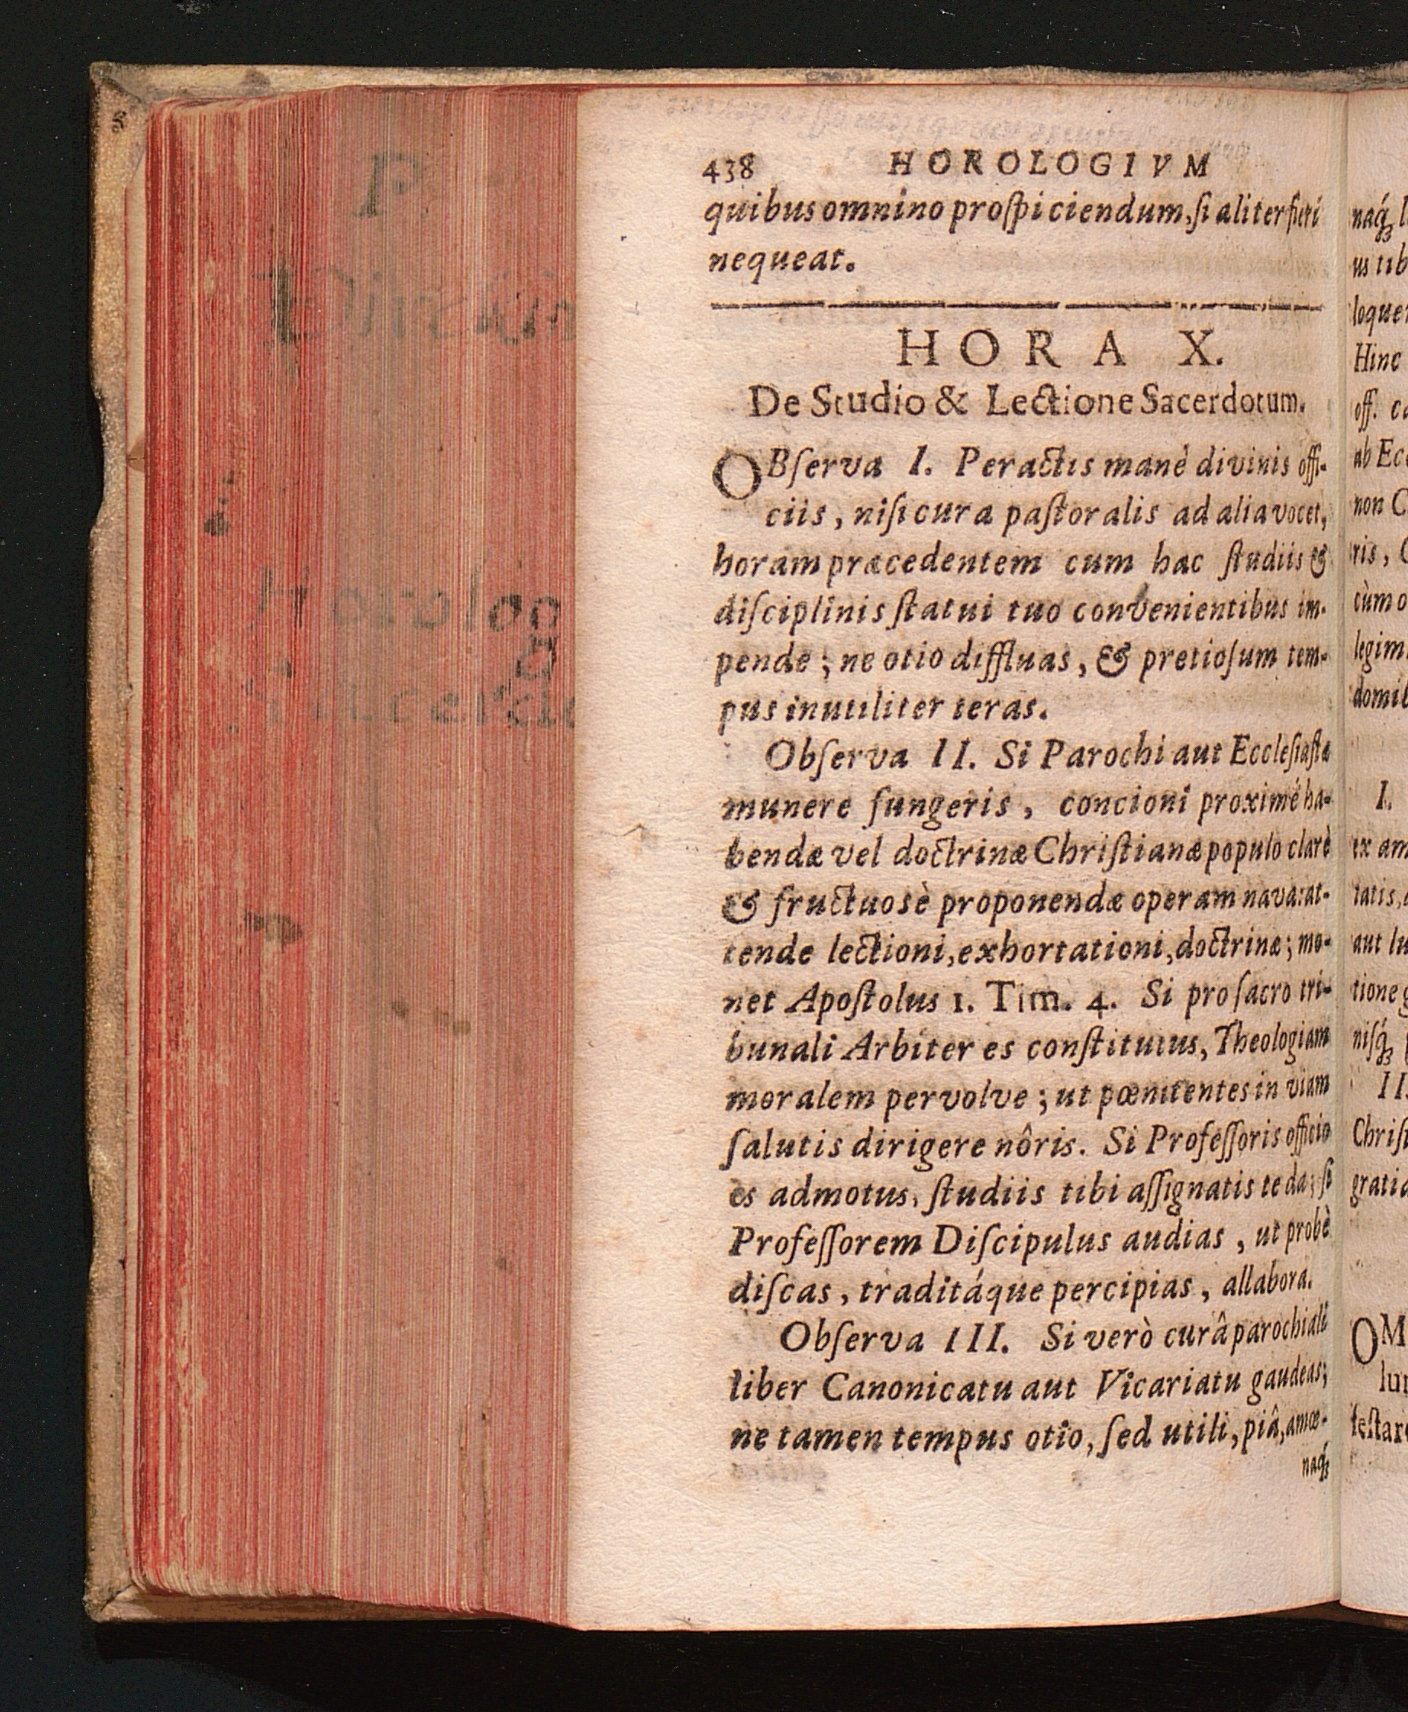 438 HOROLOGIVM
quibus omnino proſpiciendum, ſi aliter fieri
nequeat.
HORA X.
De Studio & Lectione Sacerdotum.
OBſerva I. Peractis manè divinis offi-
ciis, niſi cura paſtoralis ad alia vocet,
horam præcedentem cum hac ſtudiis &
diſciplinis ſtatui tuo convenientibus im-
pende; ne otio diffluas, & pretioſum tem-
pus inutiliter teras.
Obſerva II. Si Parochi aut Eccleſiaſtæ
munere fungeris, concioni proximè ha-
bendæ vel doctrinæ Chriſtianæ populo clarè
& fructuosè proponendæ operam nava: at-
tende lectioni, exhortationi, doctrinæ; mo-
net Apoſtolus 1. Tim. 4. Si pro ſacro tri-
bunali Arbiter es conſtitutus, Theologiam
moralem pervolve; ut pœnitentes in viam
ſalutis dirigere nôris. Si Profeſſoris officio
es admotus, ſtudiis tibi aſſignatis te da; ſi
Profeſſorem Diſcipulus audias, ut probè
diſcas, traditáque percipias, allabora.
Obſerva III. Si verò curâ parochiali
liber Canonicatu aut Vicariatu gaudeas;
ne tamen tempus otio, ſed utili, piâ, amœ-
naq́;
naq́;
us tib
loquer
Hinc
off. ca
ab Ecc
non C
ris, C
cùm o
legim
domib
I.
ex am
tatis,
aut lu
tione g
niſq́;
II.
Chriſt
gratia
OM
lun
feſtar